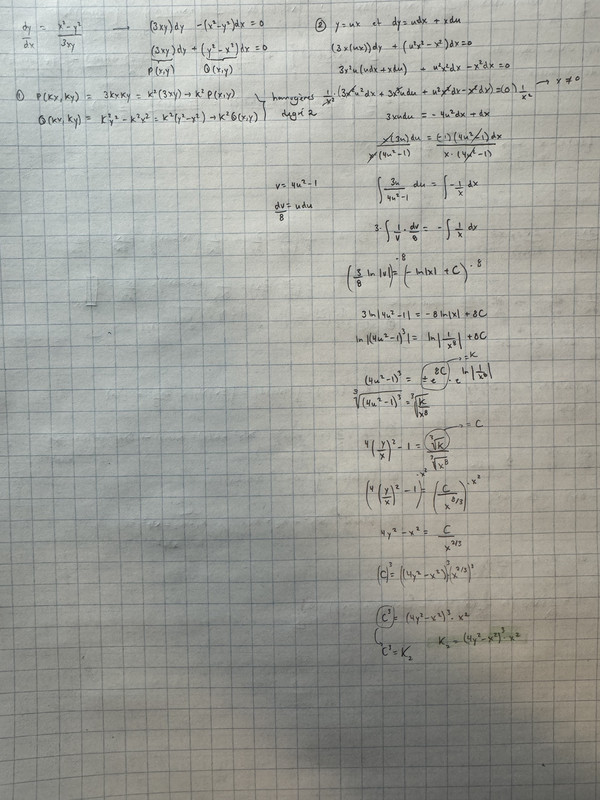 dy/dx = (x²-y²)/(3xy) → (3xy)dy - (x²-y²)dx = 0
(3xy)dy + (y²-x²)dx = 0
P(x,y) Q(x,y)
① P(kx,ky) = 3kxky = k²(3xy) → k²P(x,y)
Q(kx,ky) = k²y² - k²x² = k²(y²-x²) → k²Q(x,y)
homogènes degré 2
② y = ux et dy = udx + xdu
(3x(ux))dy + (u²x²-x²)dx = 0
3x²u(udx+xdu) + u²x²dx - x²dx = 0
1/x² · (3x²u²dx + 3x³udu + u²x²dx - x²dx) = (0) 1/x² → x ≠ 0
3xudu = -4u²dx + dx
x(3u)du / x(4u²-1) = (-1)(4u²-1)dx / x·(4u²-1)
v = 4u²-1
dv/8 = udu
∫ 3u/(4u²-1) du = ∫ -1/x dx
3·∫ 1/v · dv/8 = -∫ 1/x dx
(3/8 ln|v|)·8 = (-ln|x| + C)·8
3 ln|4u²-1| = -8 ln|x| + 8C
ln|(4u²-1)³| = ln|1/x⁸| + 8C
(4u²-1)³ = ±e^(8C) · e^(ln|1/x⁸|) = K
∛((4u²-1)³) = ∛(K/x⁸)
4(y/x)² - 1 = ∛K/∛x⁸ = C
(4(y/x)² - 1)·x² = (C/x^(8/3))·x²
4y² - x² = C/x^(2/3)
(C)³ = ((4y²-x²)·(x^(2/3)))³
C³ = (4y²-x²)³·x²
C³ = K₂
K₂ = (4y²-x²)³·x²